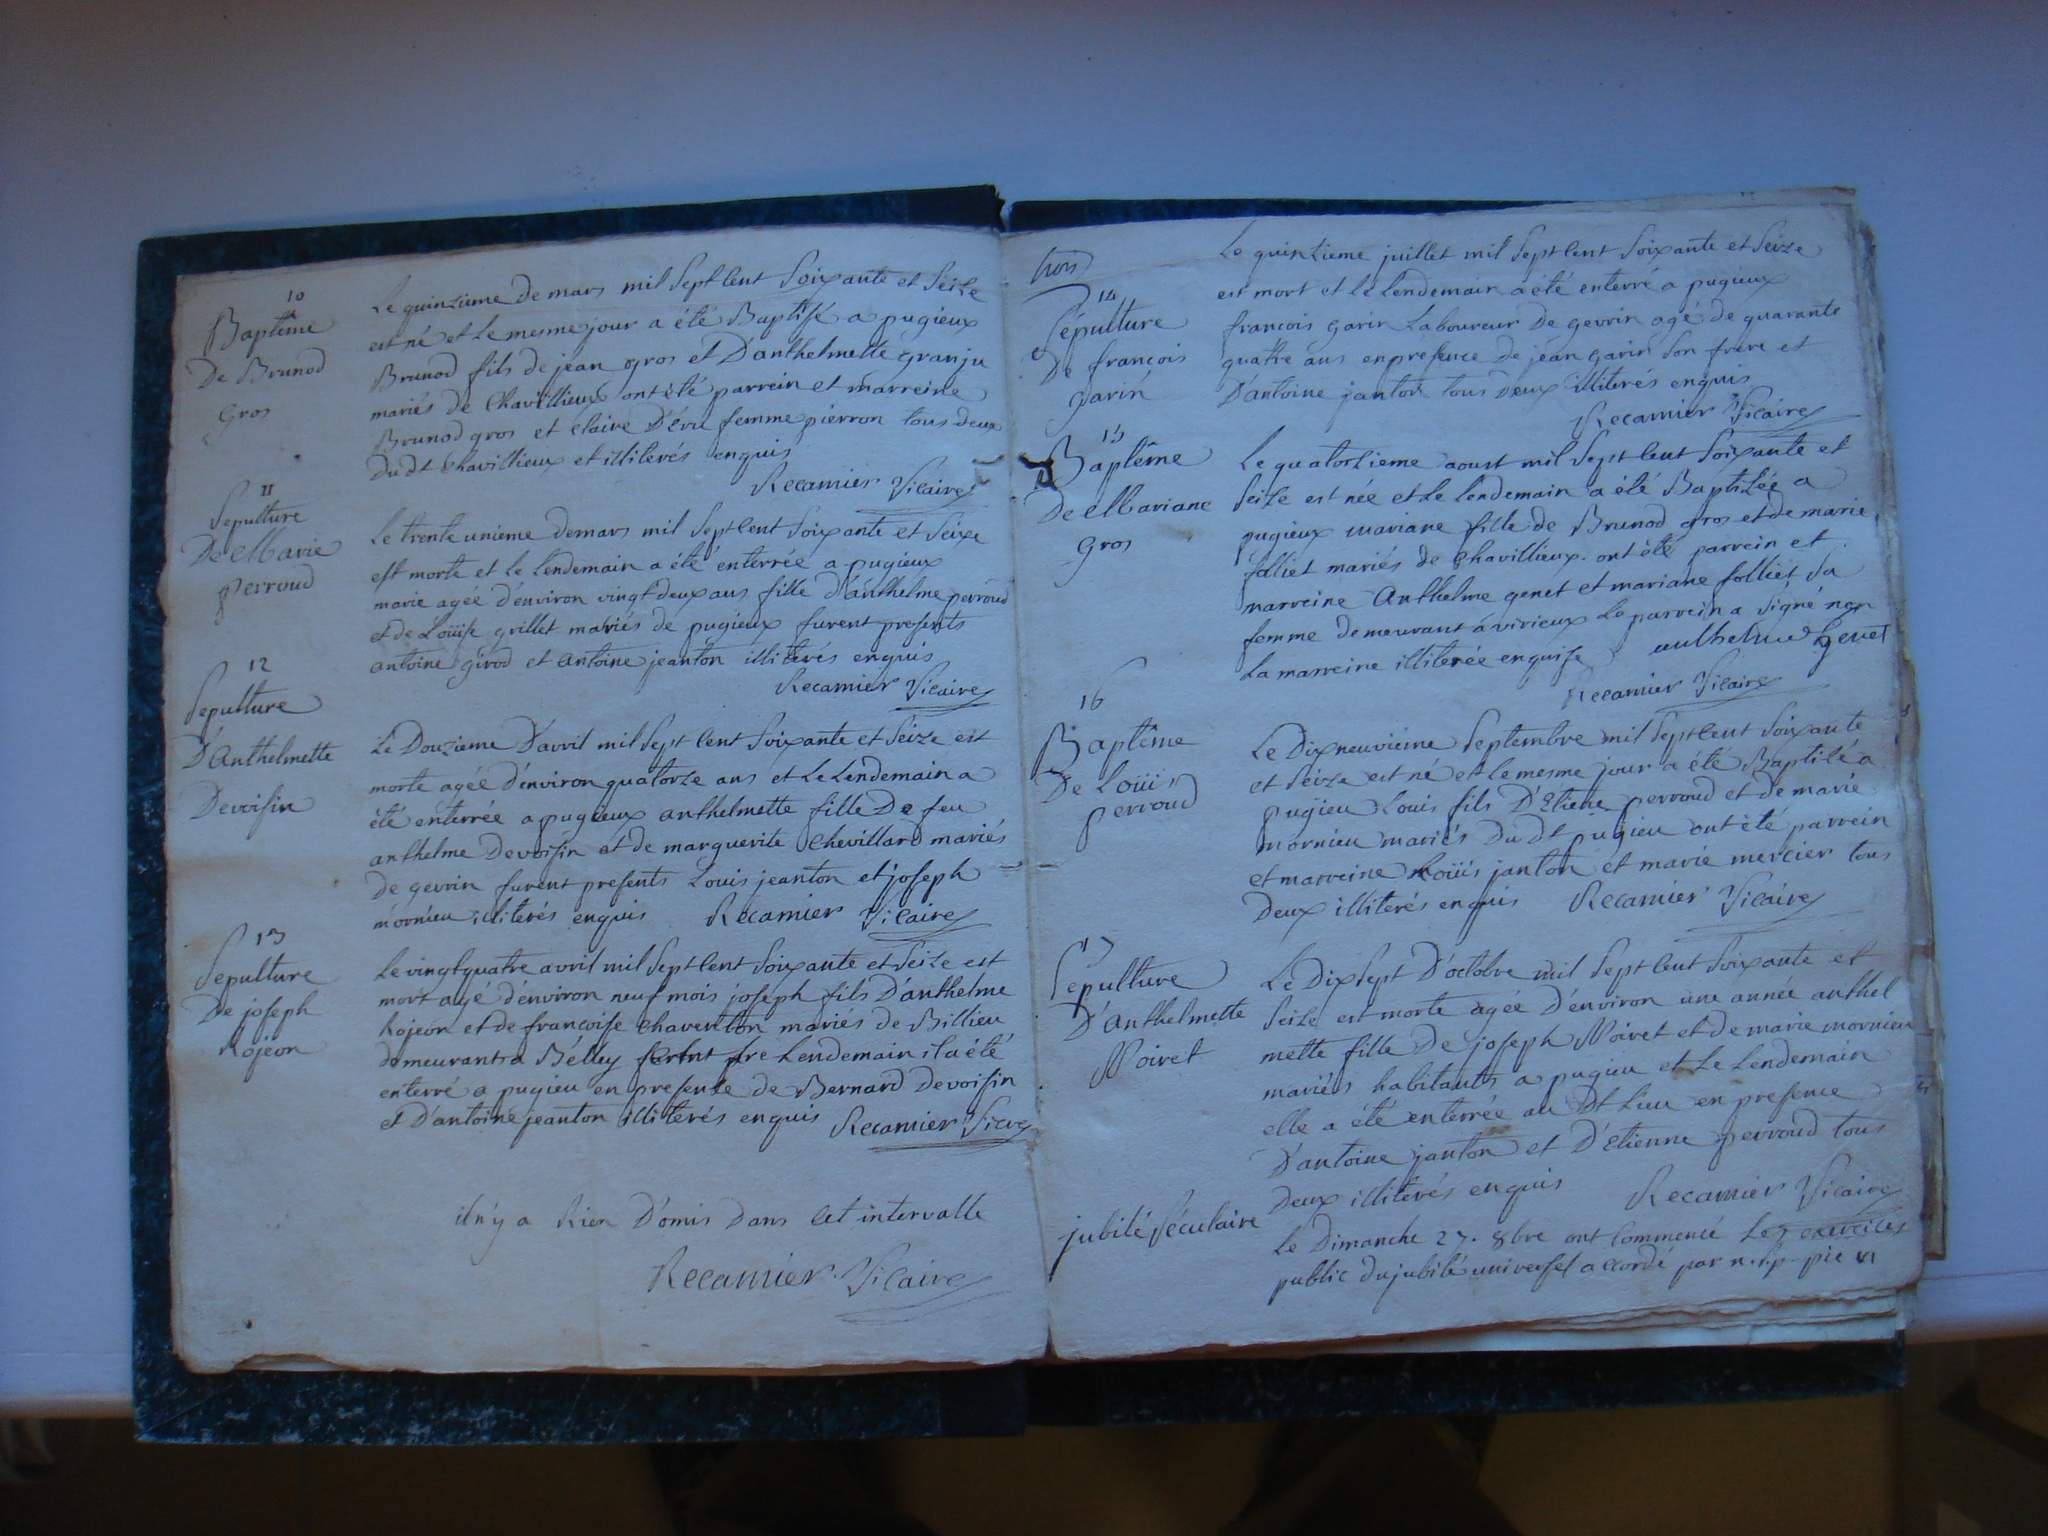 10
Baptême
De Brunod
gros
Le quinzieme de mars mil sept cent soixante et seize
est né et le mesme jour a été Baptisé a pugieux
Brunod fils de jean gros et D'anthelmette granju
mariés de Chavillieux ont été parrein et marreine
Brunod gros et Claire D'Evu femme pierron tous deux
du dt Chavillieux et illiterés enquis
Recamier Vicaire
11
Sepulture
De Marie
perroud
Le trente unieme de mars mil sept cent soixante et seize
est morte et le lendemain a été enterrée a pugieux
marie agée d'environ vingt deux ans fille d'anthelme perroud
et de Loüise grillet mariés de pugieux furent presents
antoine girod et antoine jeanton illiterés enquis
Recamier Vicaire
12
Sepulture
D'Anthelmette
Devoisin
Le Douzieme D'avril mil sept cent soixante et seize est
morte agée d'environ quatorze ans et le lendemain a
été enterrée a pugieux anthelmette fille De feu
anthelme Devoisin et de marguerite Chevillard mariés
de gevrin furent presents Louis jeanton et joseph
mornieu illiterés enquis Recamier Vicaire
13
Sepulture
De joseph
Rojeon
Le vingt quatre avril mil sept cent soixante et seize est
mort agé d'environ neuf mois joseph fils D'anthelme
Rojeon et de françoise Chaventon mariés de Billieu
demeurant a Bélley le lendemain il a été
enterré a pugieu en presence de Bernard Devoisin
et D'antoine jeanton illiterés enquis Recamier Vicre
il n'y a Rien D'omis Dans Cet intervalle
Recamier Vicaire
trois
14
Sépulture
De françois
garin
Le quinzieme juillet mil sept cent soixante et seize
est mort et le lendemain a été enterré a pugieux
françois garin Laboureur De gevrin agé de quarante
quatre ans en presence de jean garin son frere et
D'antoine janton tous deux illiterés enquis
Recamier Vicaire
15
Baptême
De Mariane
gros
Le quatorzieme aoust mil sept cent soixante et
seize est née et le lendemain a été Baptisée a
pugieux mariane fille de Brunod gros et de marie
folliet mariés de Chavillieux. ont été parrein et
marreine Anthelme genet et mariane folliet sa
femme demeurant a virieux le parrein a signé non
La marreine illiterée enquise anthelme Genet
Recamier Vicaire
16
Baptême
De Loüis
perroud
Le Dix neuvième septembre mil sept cent soixante
et seize est né et le mesme jour a été Baptisé a
pugieu Louis fils D'Etiene perroud et de marie
mornieu mariés Du dt pugieu ont été parrein
et marreine Loüis janton et marie mercier tous
Deux illiterés enquis Recamier Vicaire
17
Sepulture
D'Anthelmette
Noiret
Le Dixsept D'octobre mil sept cent soixante et
seize est morte agée d'environ une année anthel
mette fille de joseph Noiret et de marie mornieu
mariés habitants a pugieu et le Lendemain
elle a été enterrée au dt lieu en presence
D'antoine janton et D'Etienne perroud tous
Deux illiterés enquis Recamier Vicaire
jubilé séculaire
Le Dimanche 27. 8bre ont commencé Les exercices
public du jubilé universel accordé par n. s. p. pie VI